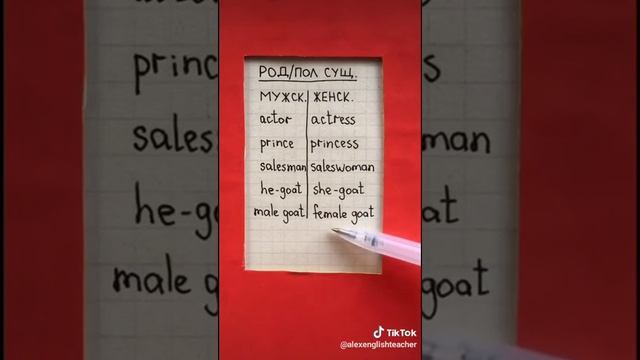 РОД/ПОЛ СУЩ.
МУЖСК. ЖЕНСК.
actor actress
prince princess
salesman saleswoman
he-goat she-goat
male goat female goat
TikTok
@alexenglishteacher